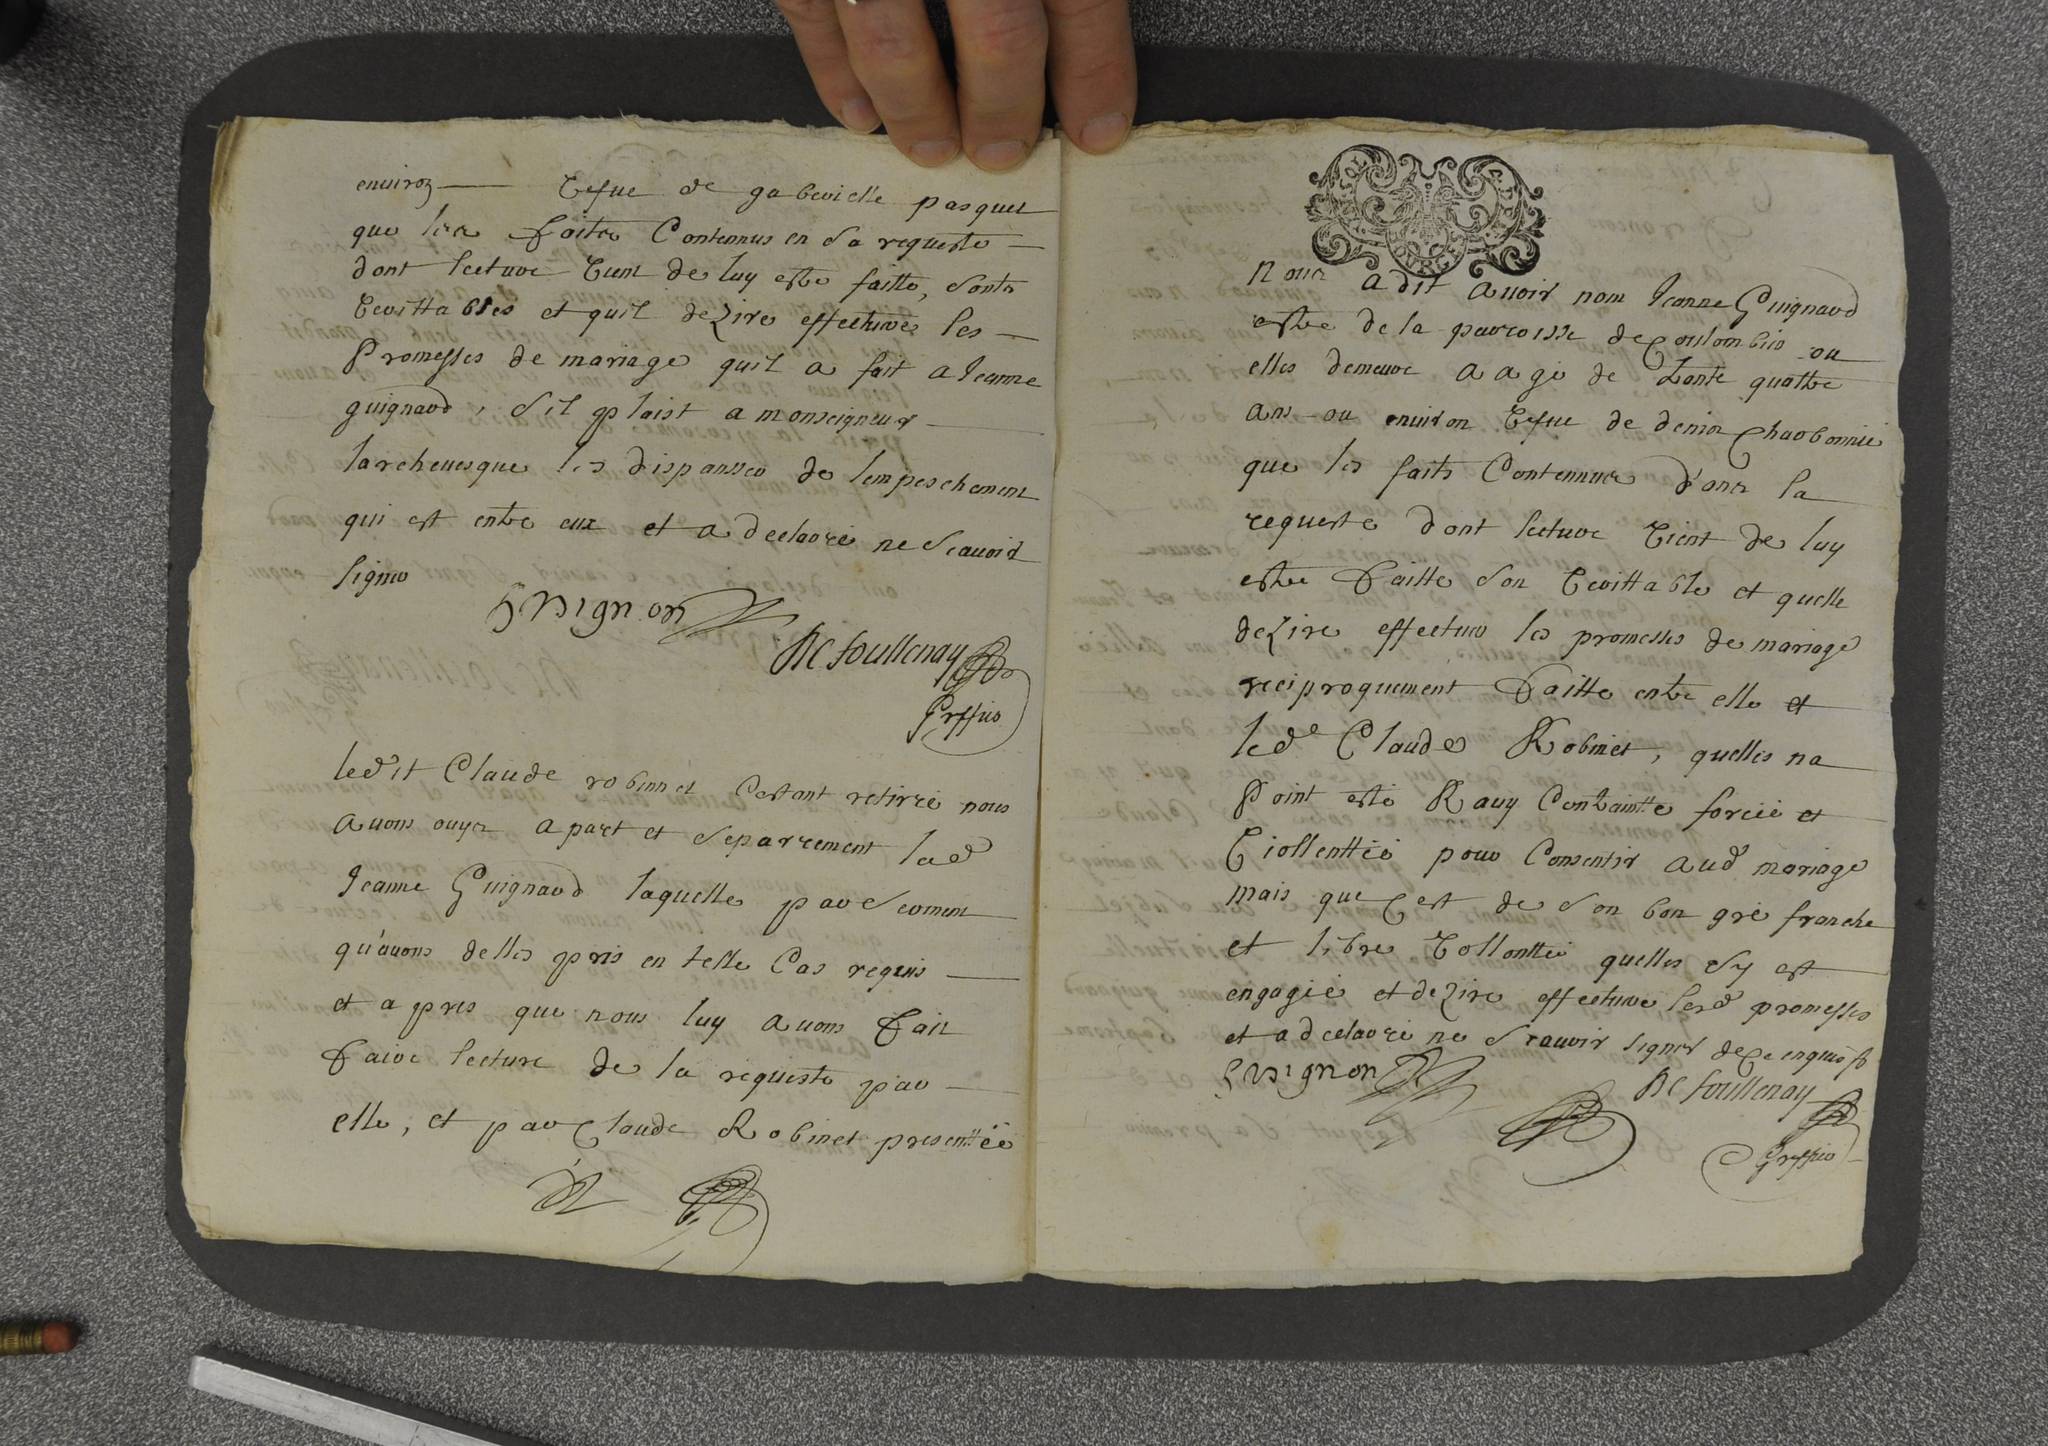 environ — vefue de gabrielle pasquet
que les faits Contennus en sa requeste
dont lecture vient de luy estre faitte, sont
verittables et quil dezire effectuer les
Promesses de mariage quil a fait a Jeanne
guignard, s'il plaist a monseigneur
larchevesque les dispansser de lempeschement
qui est entre eux et a declaré ne scavoir
signer
Guignon
De foullenay
Greffier
ledit Claude robinnet Cestant retirré nous
avons ouyr apart et separrement lad
Jeanne Guignard laquelle par serment
qu'avons delles pris en telle Cas requis
et apres que nous luy avons fait
faire lecture de la requeste par
elle, et par Claude Robinet presenttéé
BOURGES
Nous a dit avoir nom Jeanne Guignard
estre de la parroisse de Coulombier ou
elles demeure aagé de trante quattre
ans ou environ vefue de denis Charbonnier
que les faits Contennues dans la
requeste dont lecture vient de luy
estre faitte son verittable et quelle
dezire effectuer les promesses de mariage
reciproquement faitte entre elle et
led Claude Robinet, quelles na
Point esté Ravy Contraintte forcéé et
Viollenttéé pour Consentir aud mariage
mais que Cest de son bon gré franche
et libre vollonttéé quelles sy est
engagéé et dezire effectuer lesd promesses
et a declaré ne scavoir signer de Ce enquis
Guignon
De foullenay
Greffier